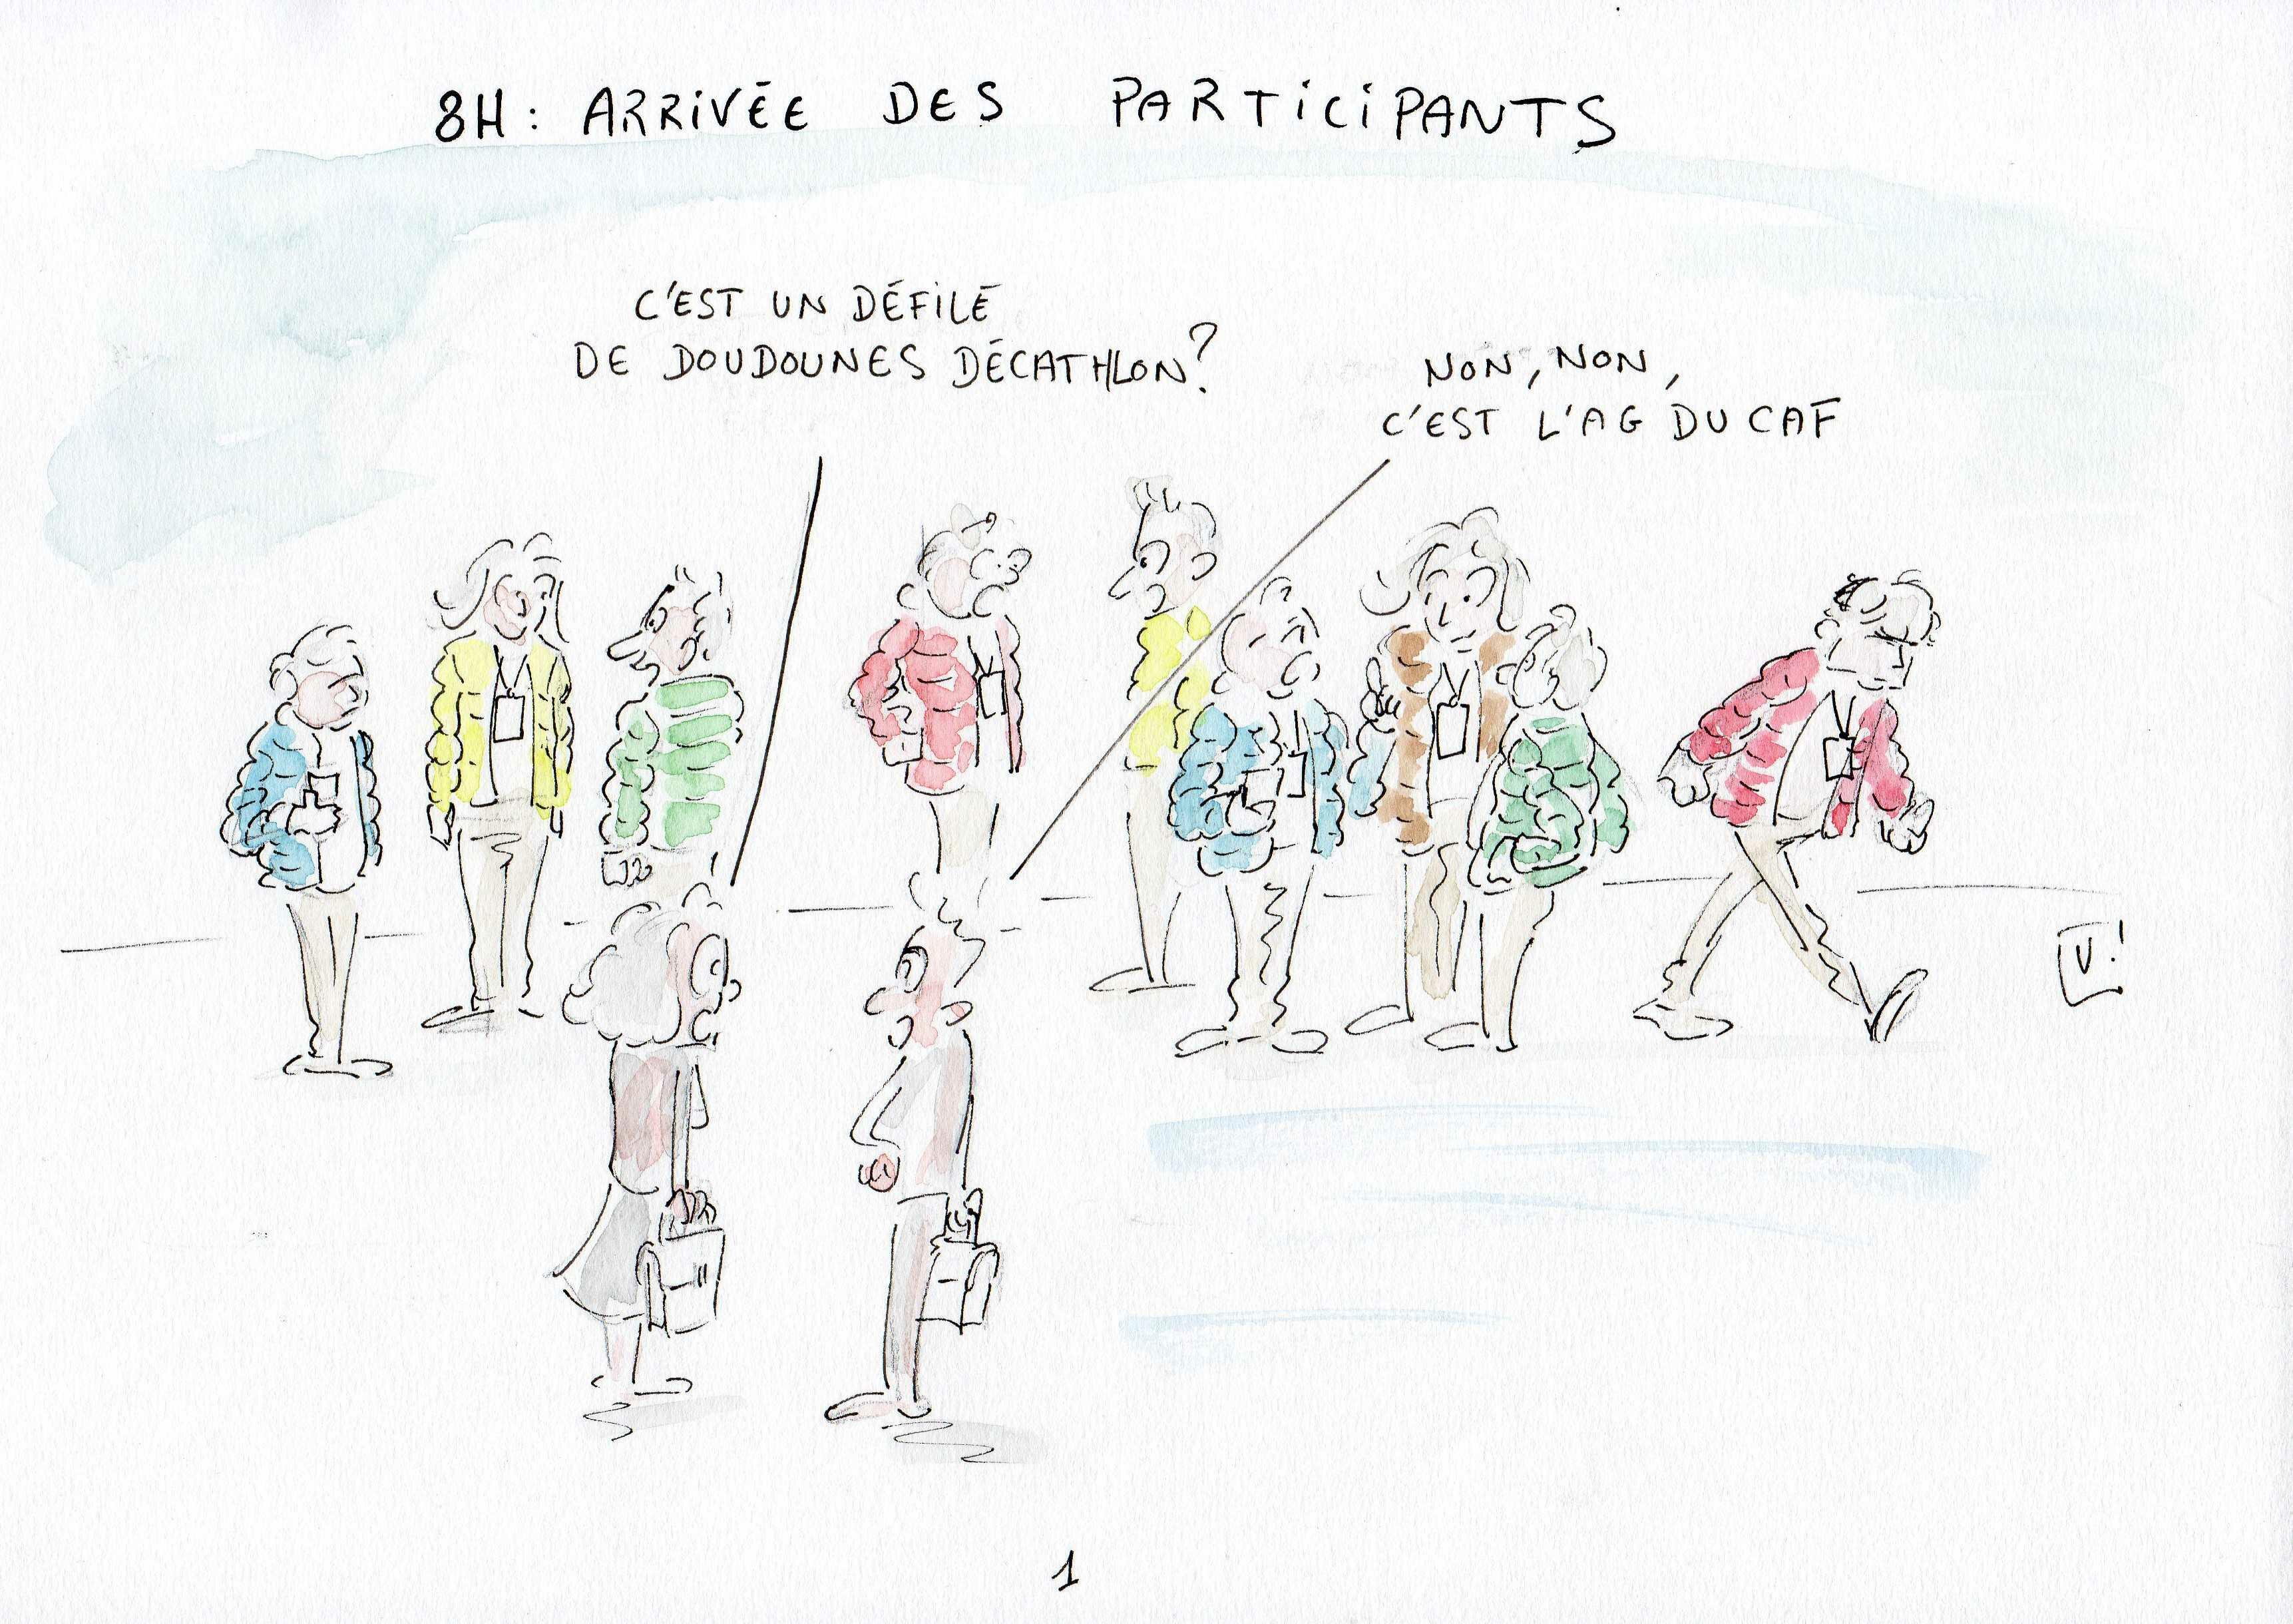 8H: ARRIVÉE DES PARTICIPANTS
C'EST UN DÉFILÉ
DE DOUDOUNES DÉCATHLON?
NON, NON,
C'EST L'AG DU CAF
U!
1